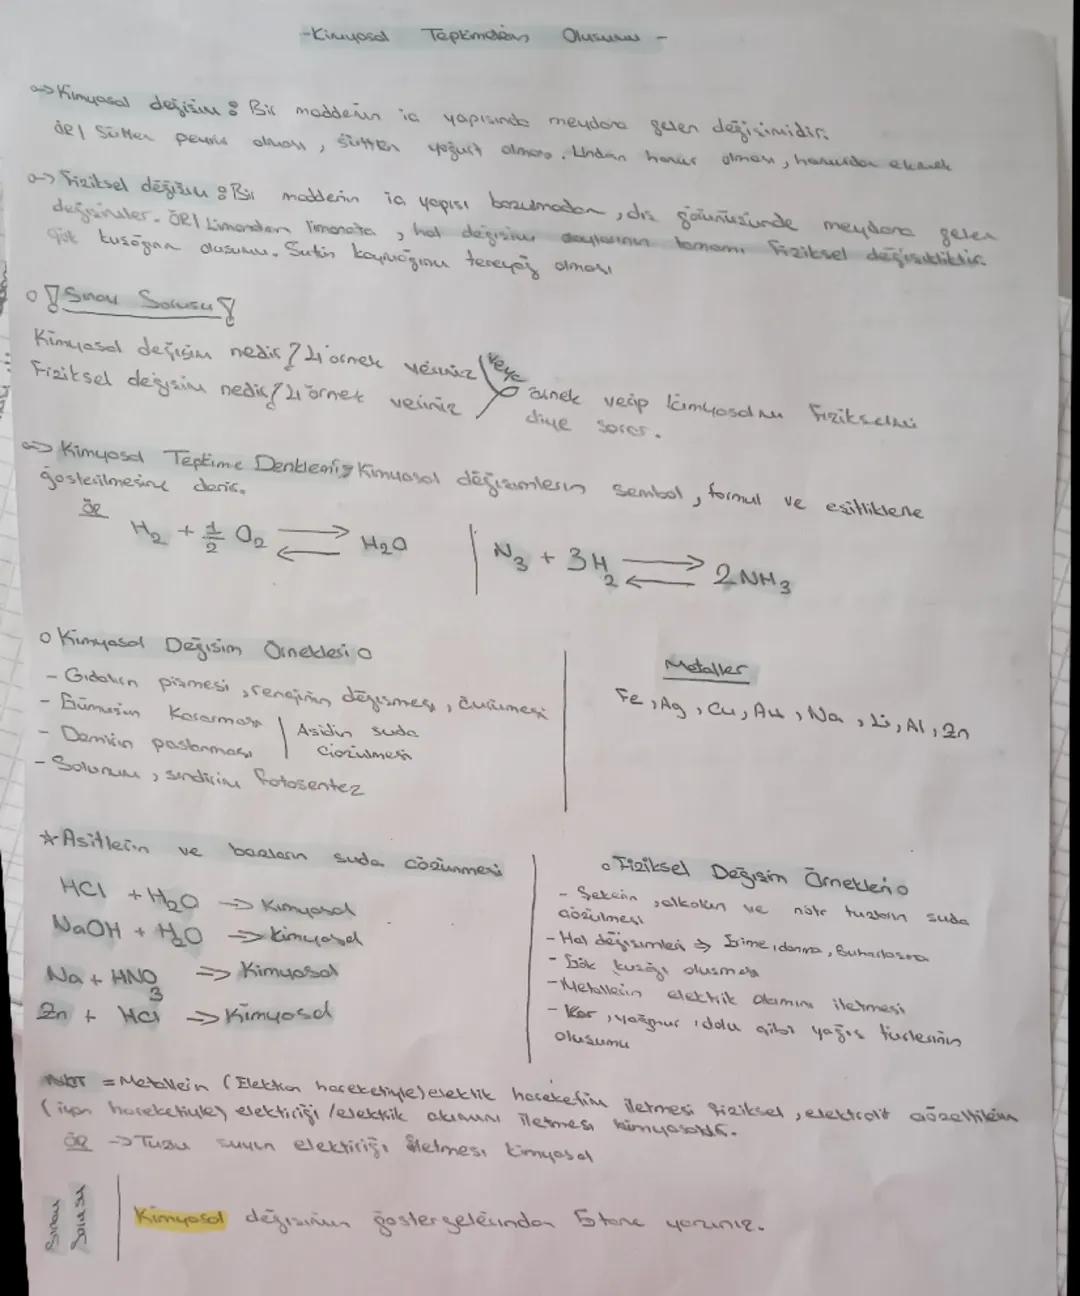 -Kimyasal Tepkimelerin Oluşumu -
=> Kimyasal değişim : Bir maddenin iç yapısında meydana gelen değişimidir.
ÖR/ Sütten peynir olması, sütten yoğurt olması. Undan hamur olması, hamurdan ekmek
=> Fiziksel değişim : Bir maddenin iç yapısı bozulmadan, dış görünüşünde meydana gelen
değişimler. ÖR/ Limondan limonata, hal değişim olaylarının tamamı fiziksel değişikliktir.
gök kuşağın oluşumu. Sütün kaymağını tereyağ olması
o ! Sınav Sorusu !
Kimyasal değişim nedir? 4 örnek veriniz
Fiziksel değişim nedir? 4 örnek veriniz
veya
örnek verip kimyasal mı fiziksel mi
diye sorar.
=> Kimyasal Tepkime Denklemi; Kimyasal değişimlerin sembol, formül ve eşitliklerle
gösterilmesine denir.
ÖR
H2 + 1/2 O2 ⇌ H2O | N3 + 3H2 ⇌ 2NH3
o Kimyasal Değişim Örnekleri o
- Gıdaların pişmesi, renginin değişmesi, çürümesi
- Gümüşün Kararması | Asidin suda
- Demirin paslanması | Çözülmesi
- Solunum, sindirim fotosentez
Metaller
Fe, Ag, Cu, Au, Na, Li, Al, Zn
* Asitlerin ve bazların suda çözünmesi
HCl + H2O => Kimyasal
NaOH + H2O => Kimyasal
Na + HNO3 => Kimyasal
Zn + HCl => Kimyasal
o Fiziksel Değişim Örnekleri o
- Şekerin, alkolün ve nötr tuzların suda
çözülmesi
- Hal değişimleri => Erime, donma, Buharlaşma
- Gök kuşağı oluşması
- Metallerin elektrik akımını iletmesi
- Kar, yağmur, dolu gibi yağış türlerinin
oluşumu
NOT = Metallerin (Elektron hareketiyle) elektrik hareketini iletmesi fiziksel, elektrolit çözeltilerin
(iyon hareketiyle) elektriği /elektrik akımını iletmesi kimyasaldır.
ÖR -> Tuzlu suyun elektriği iletmesi kimyasal
Sınav
Sorusu
Kimyasal değişimin göstergelerinden 5 tane yazınız.